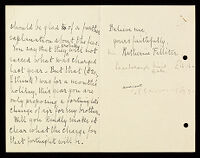 should be glad of a further
explanation about the fees
You say that they
exceed what was charged
last year. But that (£20,
I think) was for a months
holiday, this year you are
only proposing a fortnight's
change of air for my brother.
Will you kindly make it
clear what the charge for
that fortnight will be.
Believe me
yours faithfully
Katharine